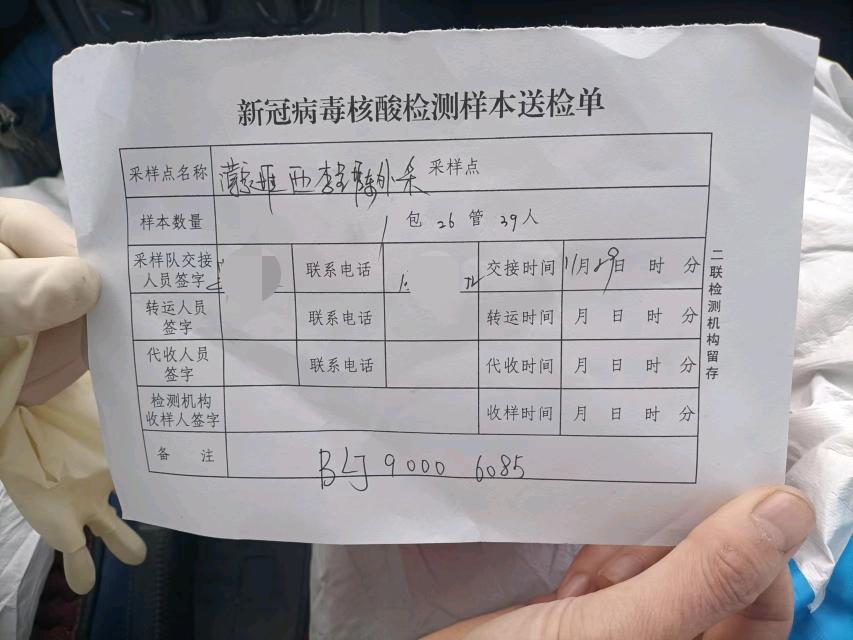 新冠病毒核酸检测样本送检单
采样点名称 采样点
样本数量 1 包 26 管 39 人
采样队交接人员签字 联系电话 交接时间 11月29日 时 分
转运人员签字 联系电话 转运时间 月 日 时 分
代收人员签字 联系电话 代收时间 月 日 时 分
检测机构收样人签字 收样时间 月 日 时 分
备 注 BLJ 9000 6085
二联检测机构留存